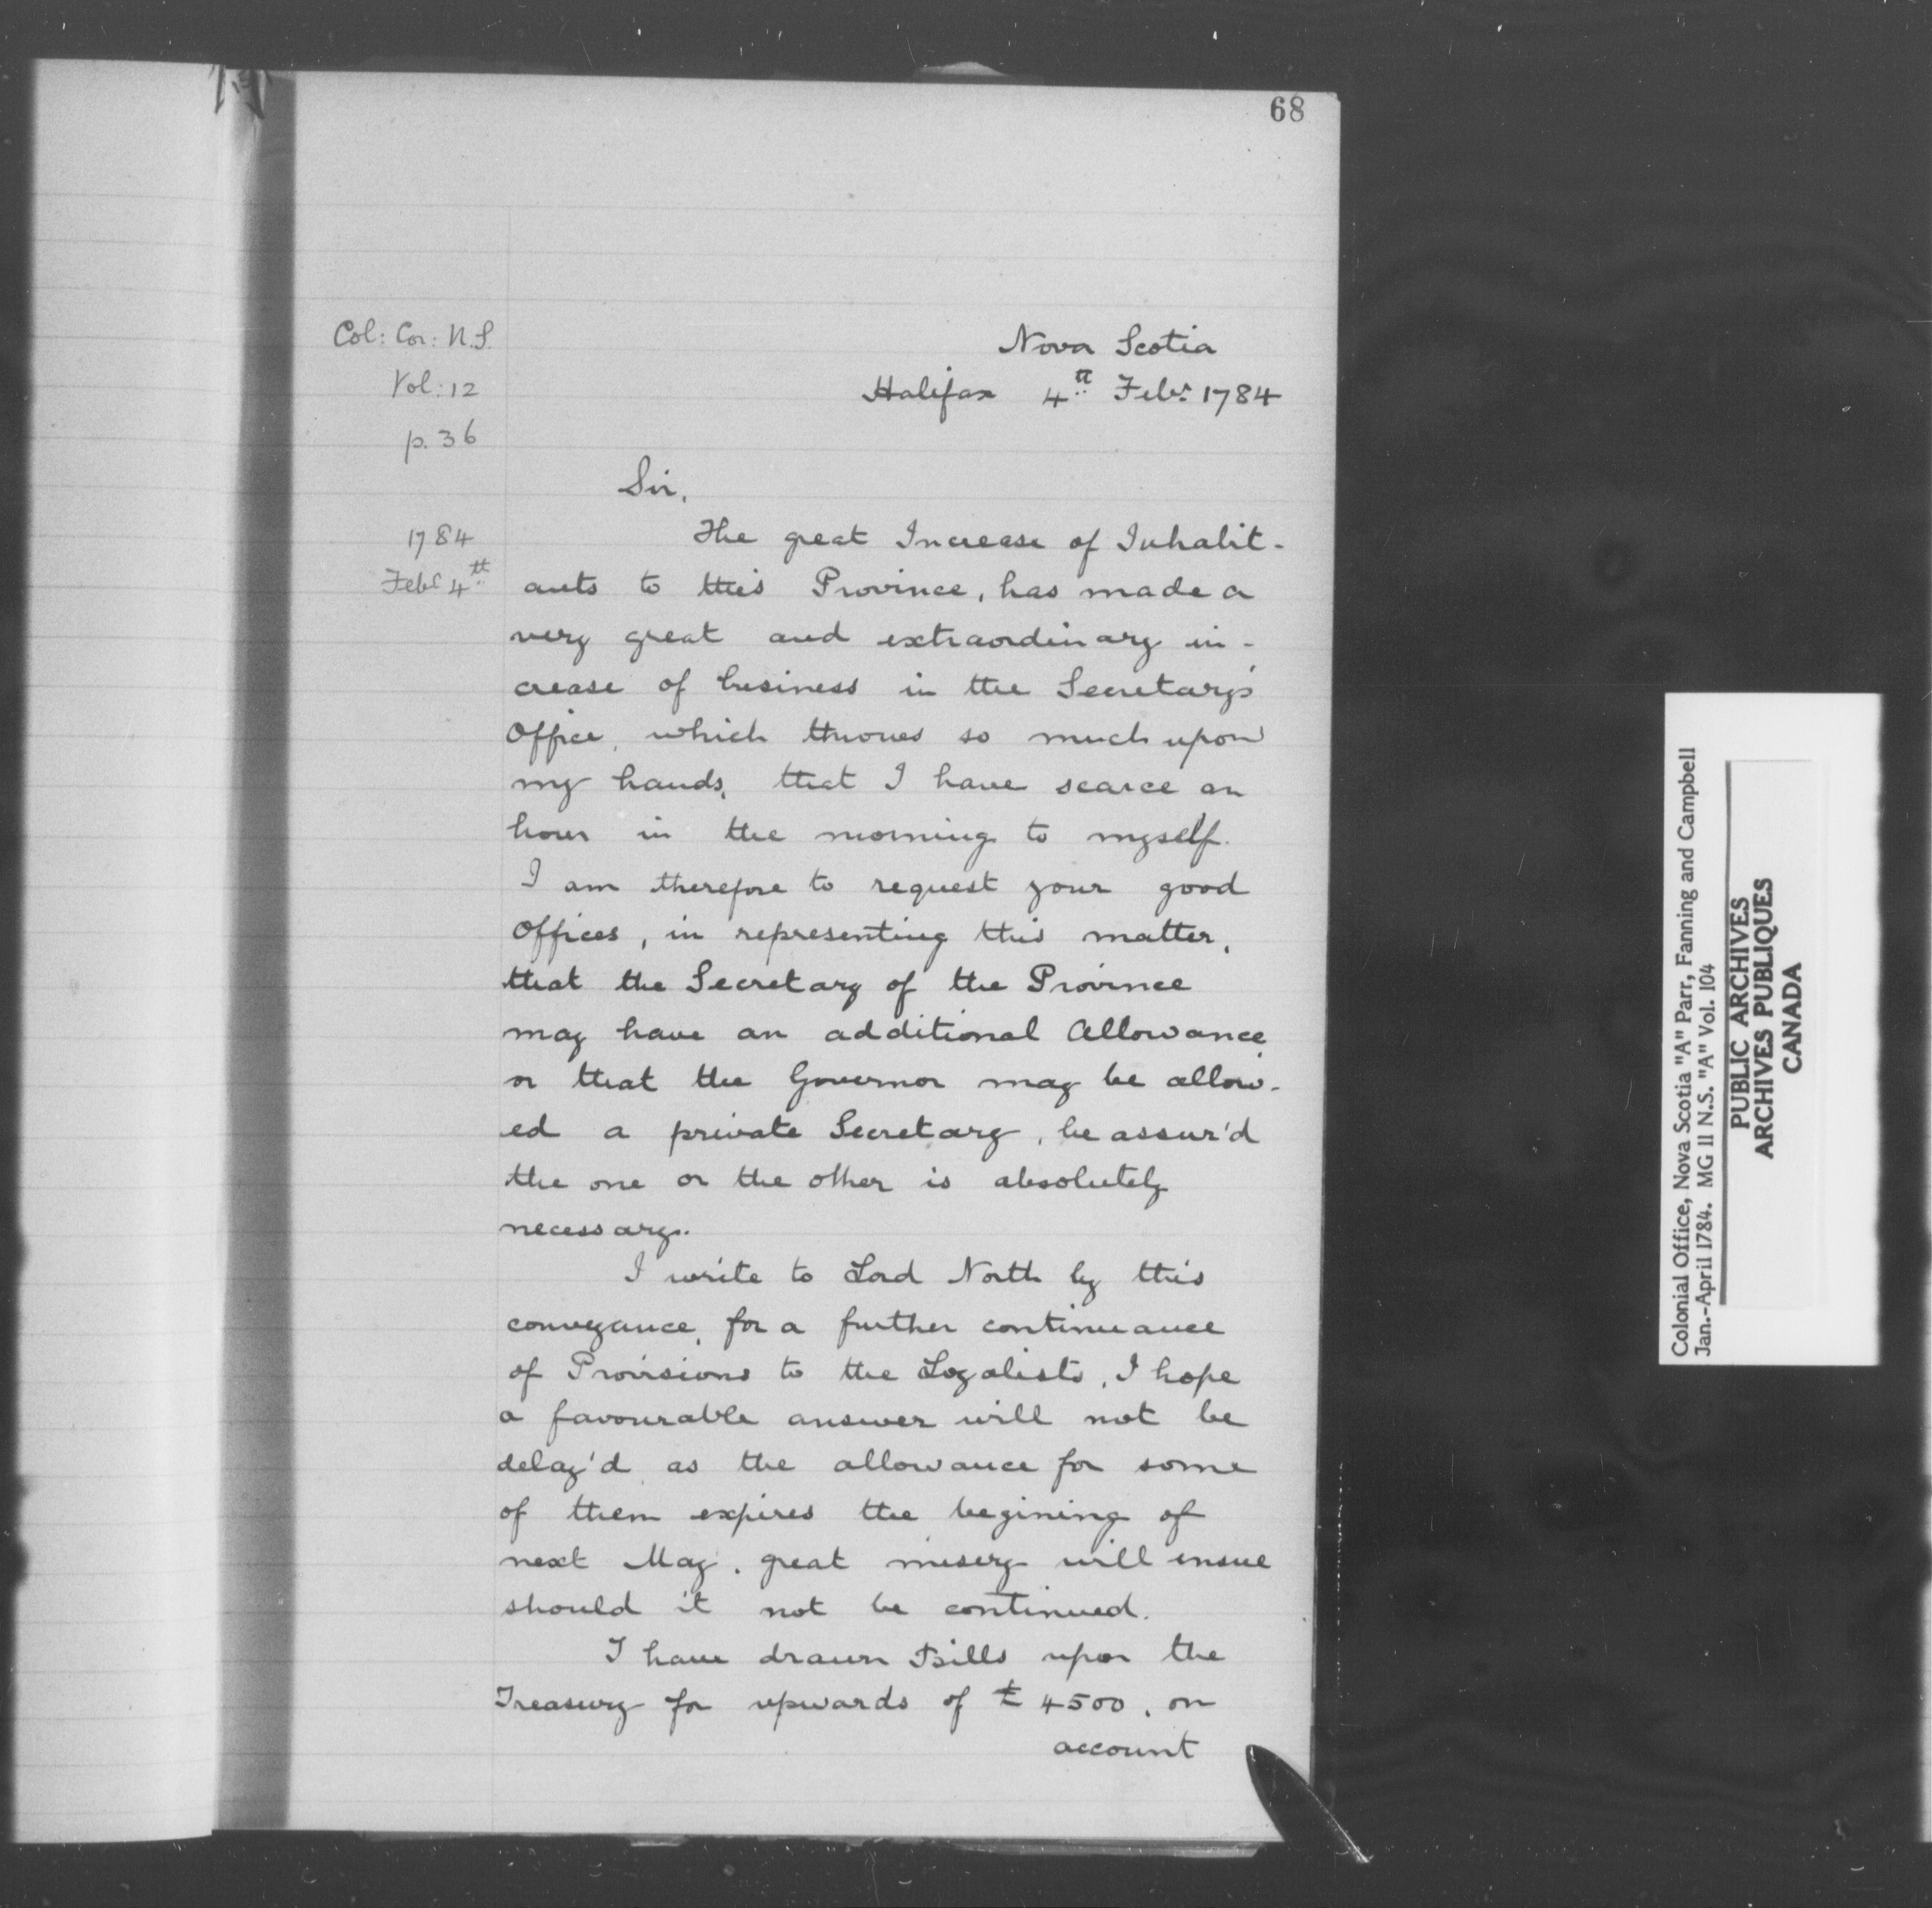 68
Col: Cor: N.S.
Vol: 12
p. 36
Nova Scotia
Halifax 4th Febr. 1784
Sir,
1784
Feby 4th
The great Increase of Inhabit-
ants to this Province, has made a
very great and extraordinary in-
crease of business in the Secretary's
Office, which throws so much upon
my hands, that I have scarce an
hour in the morning to myself.
I am therefore to request your good
Offices, in representing this matter,
that the Secretary of the Province
may have an additional Allowance
or that the Governor may be allow-
ed a private Secretary, be assur'd
the one or the other is absolutely
necessary.
I write to Lord North by this
conveyance, for a further continuance
of Provisions to the Loyalists, I hope
a favourable answer will not be
delay'd as the allowance for some
of them expires the begining of
next May, great misery will ensue
should it not be continued.
I have drawn Bills upon the
Treasury for upwards of £ 4500, on
account
Colonial Office, Nova Scotia "A" Parr, Fanning and Campbell
Jan.-April 1784. MG 11 N.S. "A" Vol. 104
PUBLIC ARCHIVES
ARCHIVES PUBLIQUES
CANADA